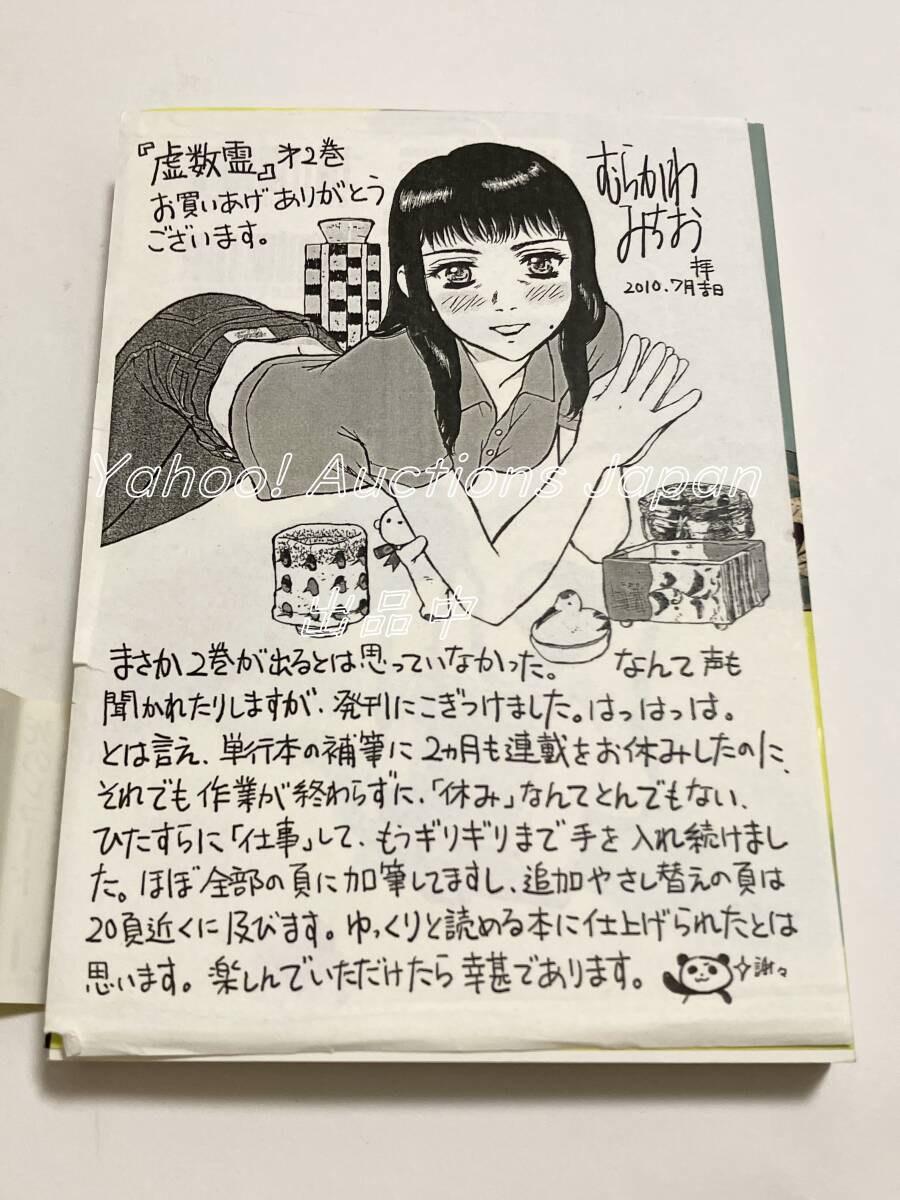 『虚数霊』才2巻
お買いあげありがとう
ございます。
むらかわ
みちお
拝
2010.7月吉日
Yahoo! Auctions Japan
出品中
まさか2巻が出るとは思っていなかった。 なんて声も
聞かれたりしますが、発刊にこぎつけました。はっはっは。
とは言え、単行本の補筆に2ヵ月も連載をお休みしたのに、
それでも作業が終わらずに、「休み」なんてとんでもない、
ひたすらに「仕事」して、もうギリギリまで手を入れ続けまし
た。ほぼ全部の頁に加筆してますし、追加やさし替えの頁は
20頁近くに及びます。ゆっくりと読める本に仕上げられたとは
思います。楽しんでいただけたら幸甚であります。
謝々